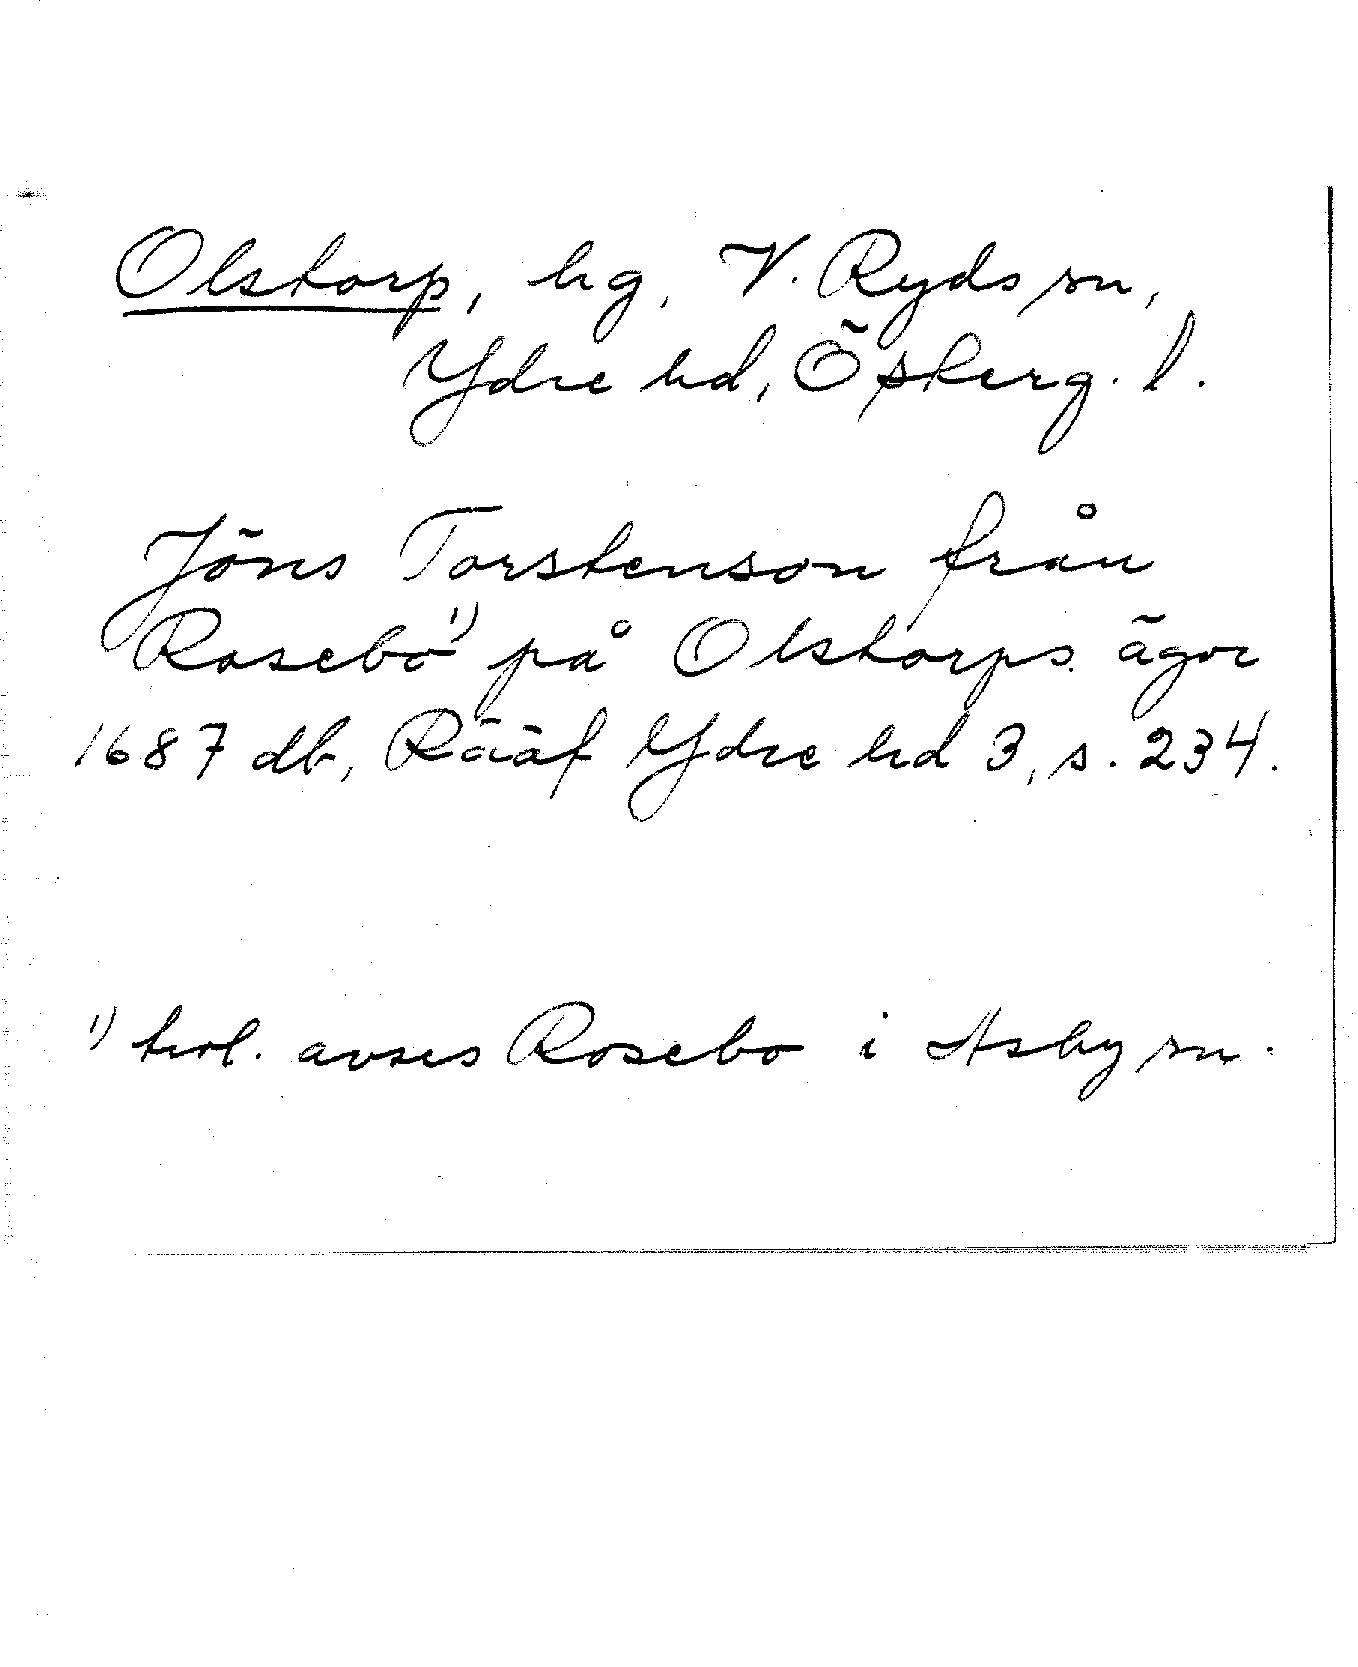 Olstorp, hg, V. Ryds sn,
Ydre hd, Östferg. l.
Jöns Torstenson från
Rosebo¹⁾ på Olstorps ägor
1687 db, Rääf Ydre hd 3, s. 234.
¹⁾ trol. avses Rosebo i Asby sn.